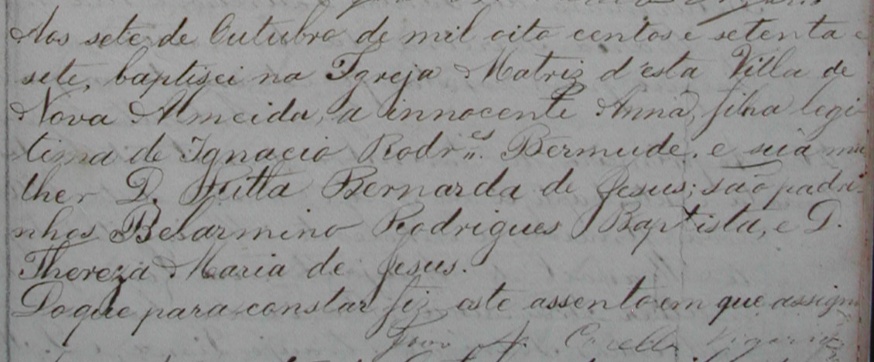 Aos sete de Outubro de mil oito centos e setenta e
sete, baptisei na Igreja Matriz d'esta Villa de
Nova Almeida, a innocente Anna, filha legi
tima de Ignacio Rodr.es Bermude, e sua mu
lher D. Ritta Bernarda de Jesus; são padri-
nhos Belarmino Rodrigues Baptista, e D.
Thereza Maria de Jesus.
Do que para constar fiz este assento em que assign